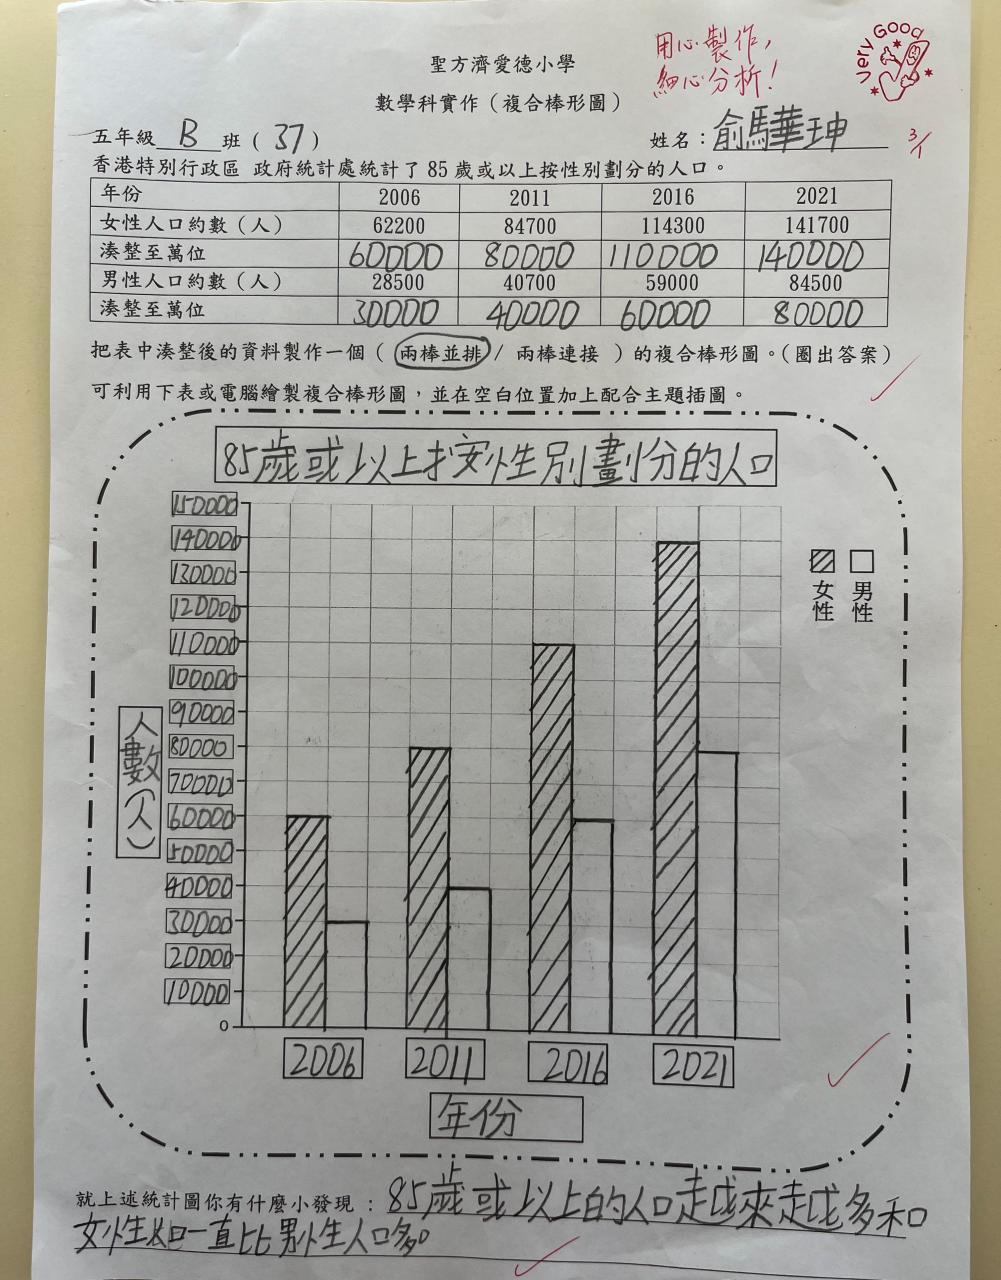 Very Good
用心製作，
細心分析！
聖方濟愛德小學
數學科實作（複合棒形圖）
五年級 B 班（ 37 ）
姓名：俞馬華珅
3/1
香港特別行政區 政府統計處統計了 85 歲或以上按性別劃分的人口。
年份 2006 2011 2016 2021
女性人口約數（人） 62200 84700 114300 141700
湊整至萬位 60000 80000 110000 140000
男性人口約數（人） 28500 40700 59000 84500
湊整至萬位 30000 40000 60000 80000
把表中湊整後的資料製作一個（ 兩棒並排 / 兩棒連接 ）的複合棒形圖。（圈出答案）
可利用下表或電腦繪製複合棒形圖，並在空白位置加上配合主題插圖。
85歲或以上按性別劃分的人口
150000
140000
130000
120000
110000
100000
90000
80000
70000
60000
50000
40000
30000
20000
10000
0
人數（人）
女性
男性
2006 2011 2016 2021
年份
就上述統計圖你有什麼小發現：85歲或以上的人口越來越多和
女性人口一直比男性人口多